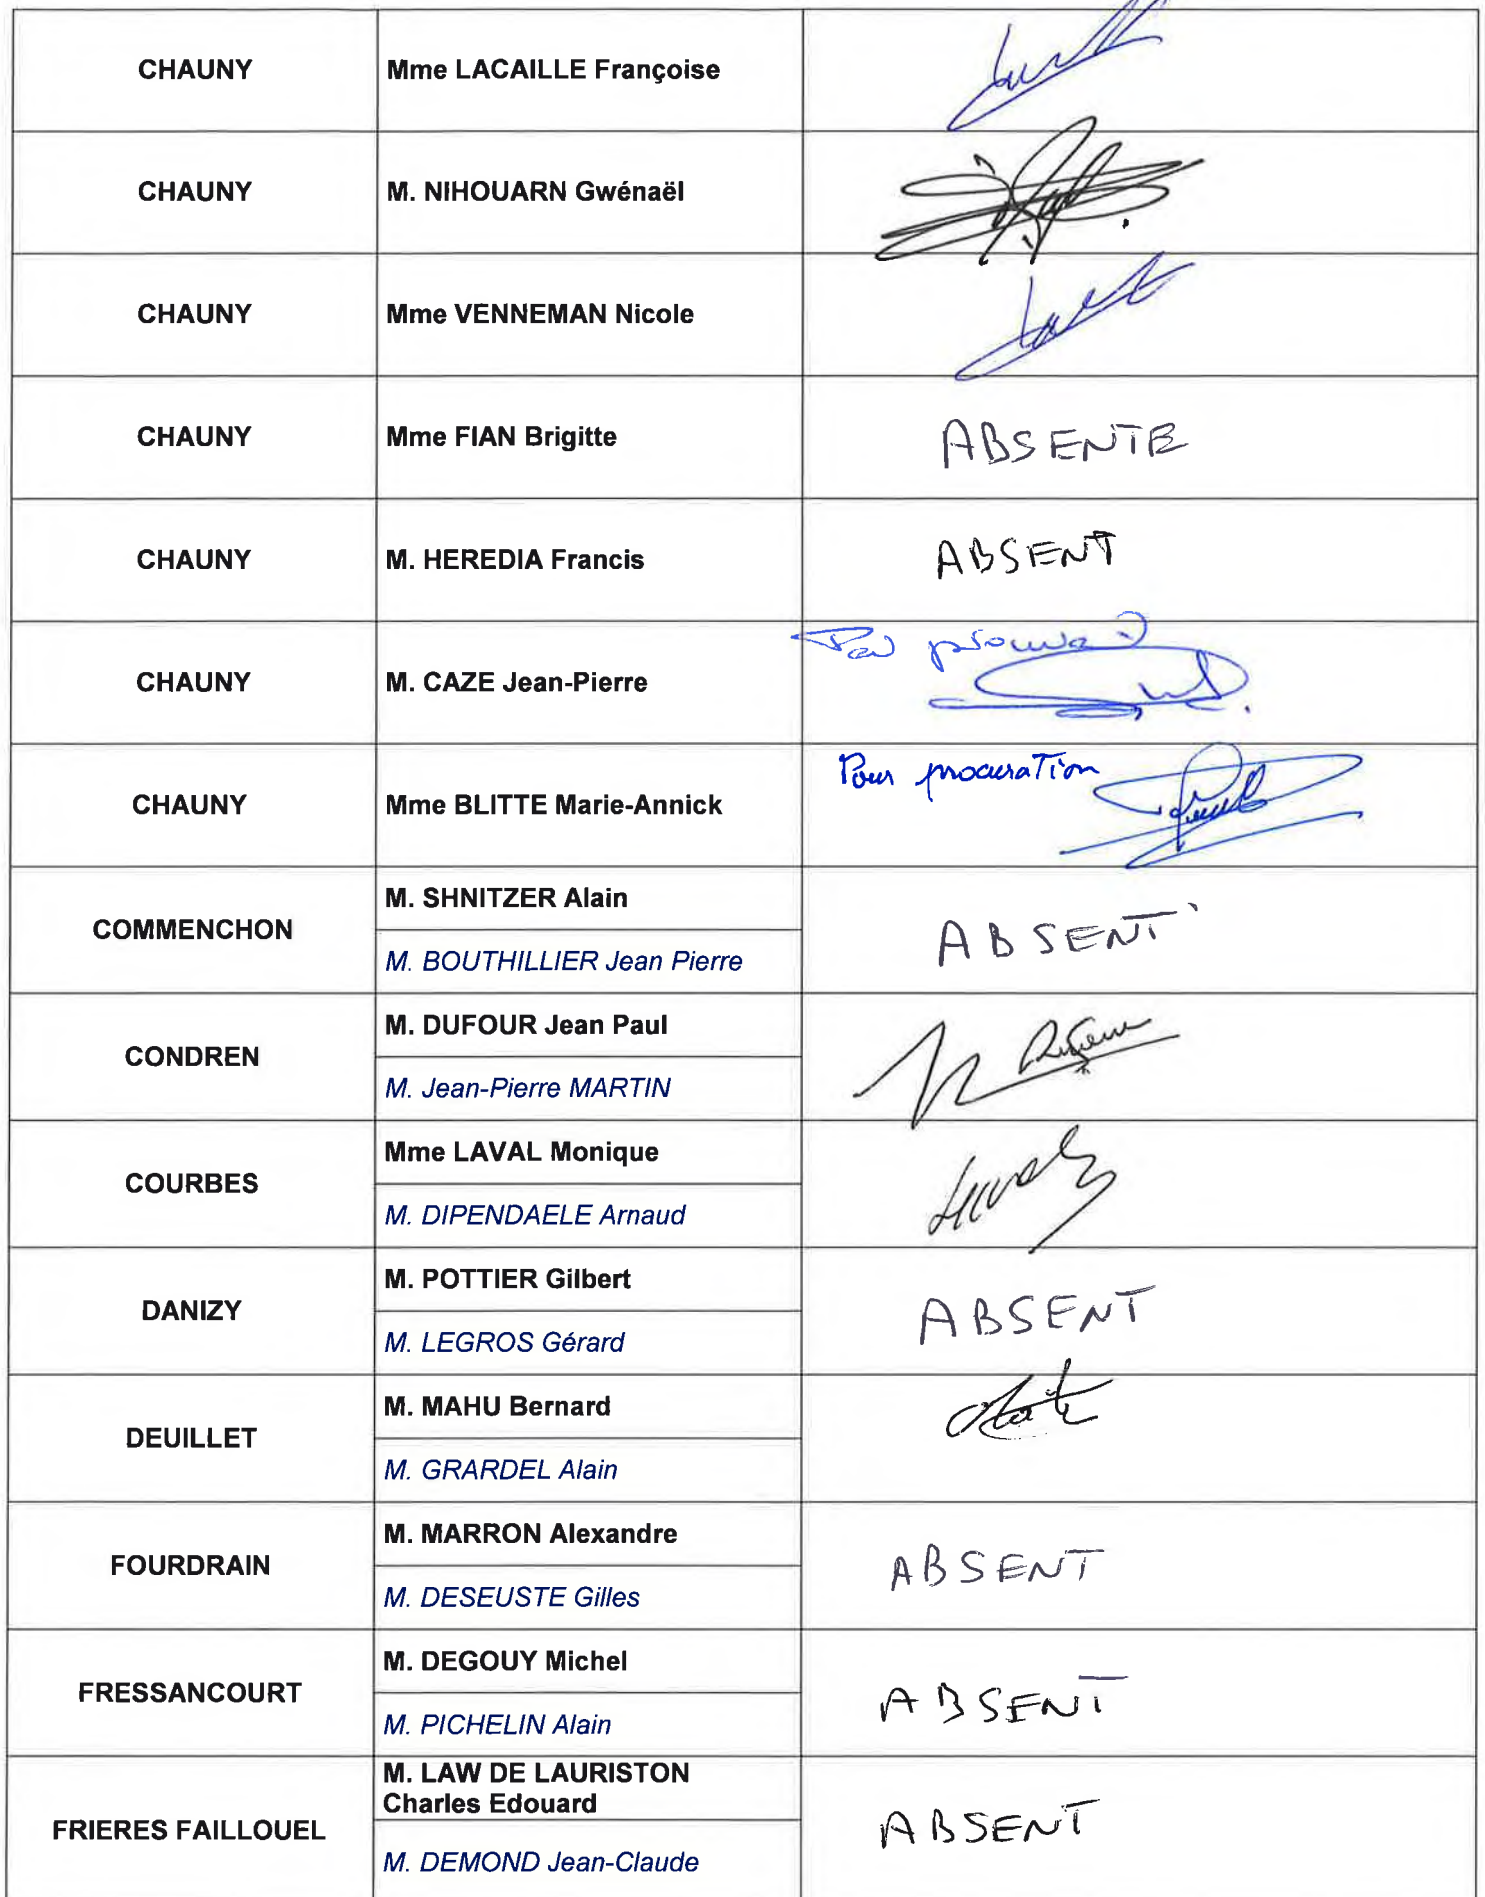 CHAUNY Mme LACAILLE Françoise
CHAUNY M. NIHOUARN Gwénaël
CHAUNY Mme VENNEMAN Nicole
CHAUNY Mme FIAN Brigitte ABSENTE
CHAUNY M. HEREDIA Francis ABSENT
CHAUNY M. CAZE Jean-Pierre
CHAUNY Mme BLITTE Marie-Annick Pour procuration
COMMENCHON M. SHNITZER Alain ABSENT
M. BOUTHILLIER Jean Pierre
CONDREN M. DUFOUR Jean Paul
M. Jean-Pierre MARTIN
COURBES Mme LAVAL Monique
M. DIPENDAELE Arnaud
DANIZY M. POTTIER Gilbert ABSENT
M. LEGROS Gérard
DEUILLET M. MAHU Bernard
M. GRARDEL Alain
FOURDRAIN M. MARRON Alexandre ABSENT
M. DESEUSTE Gilles
FRESSANCOURT M. DEGOUY Michel ABSENT
M. PICHELIN Alain
FRIERES FAILLOUEL M. LAW DE LAURISTON
Charles Edouard ABSENT
M. DEMOND Jean-Claude